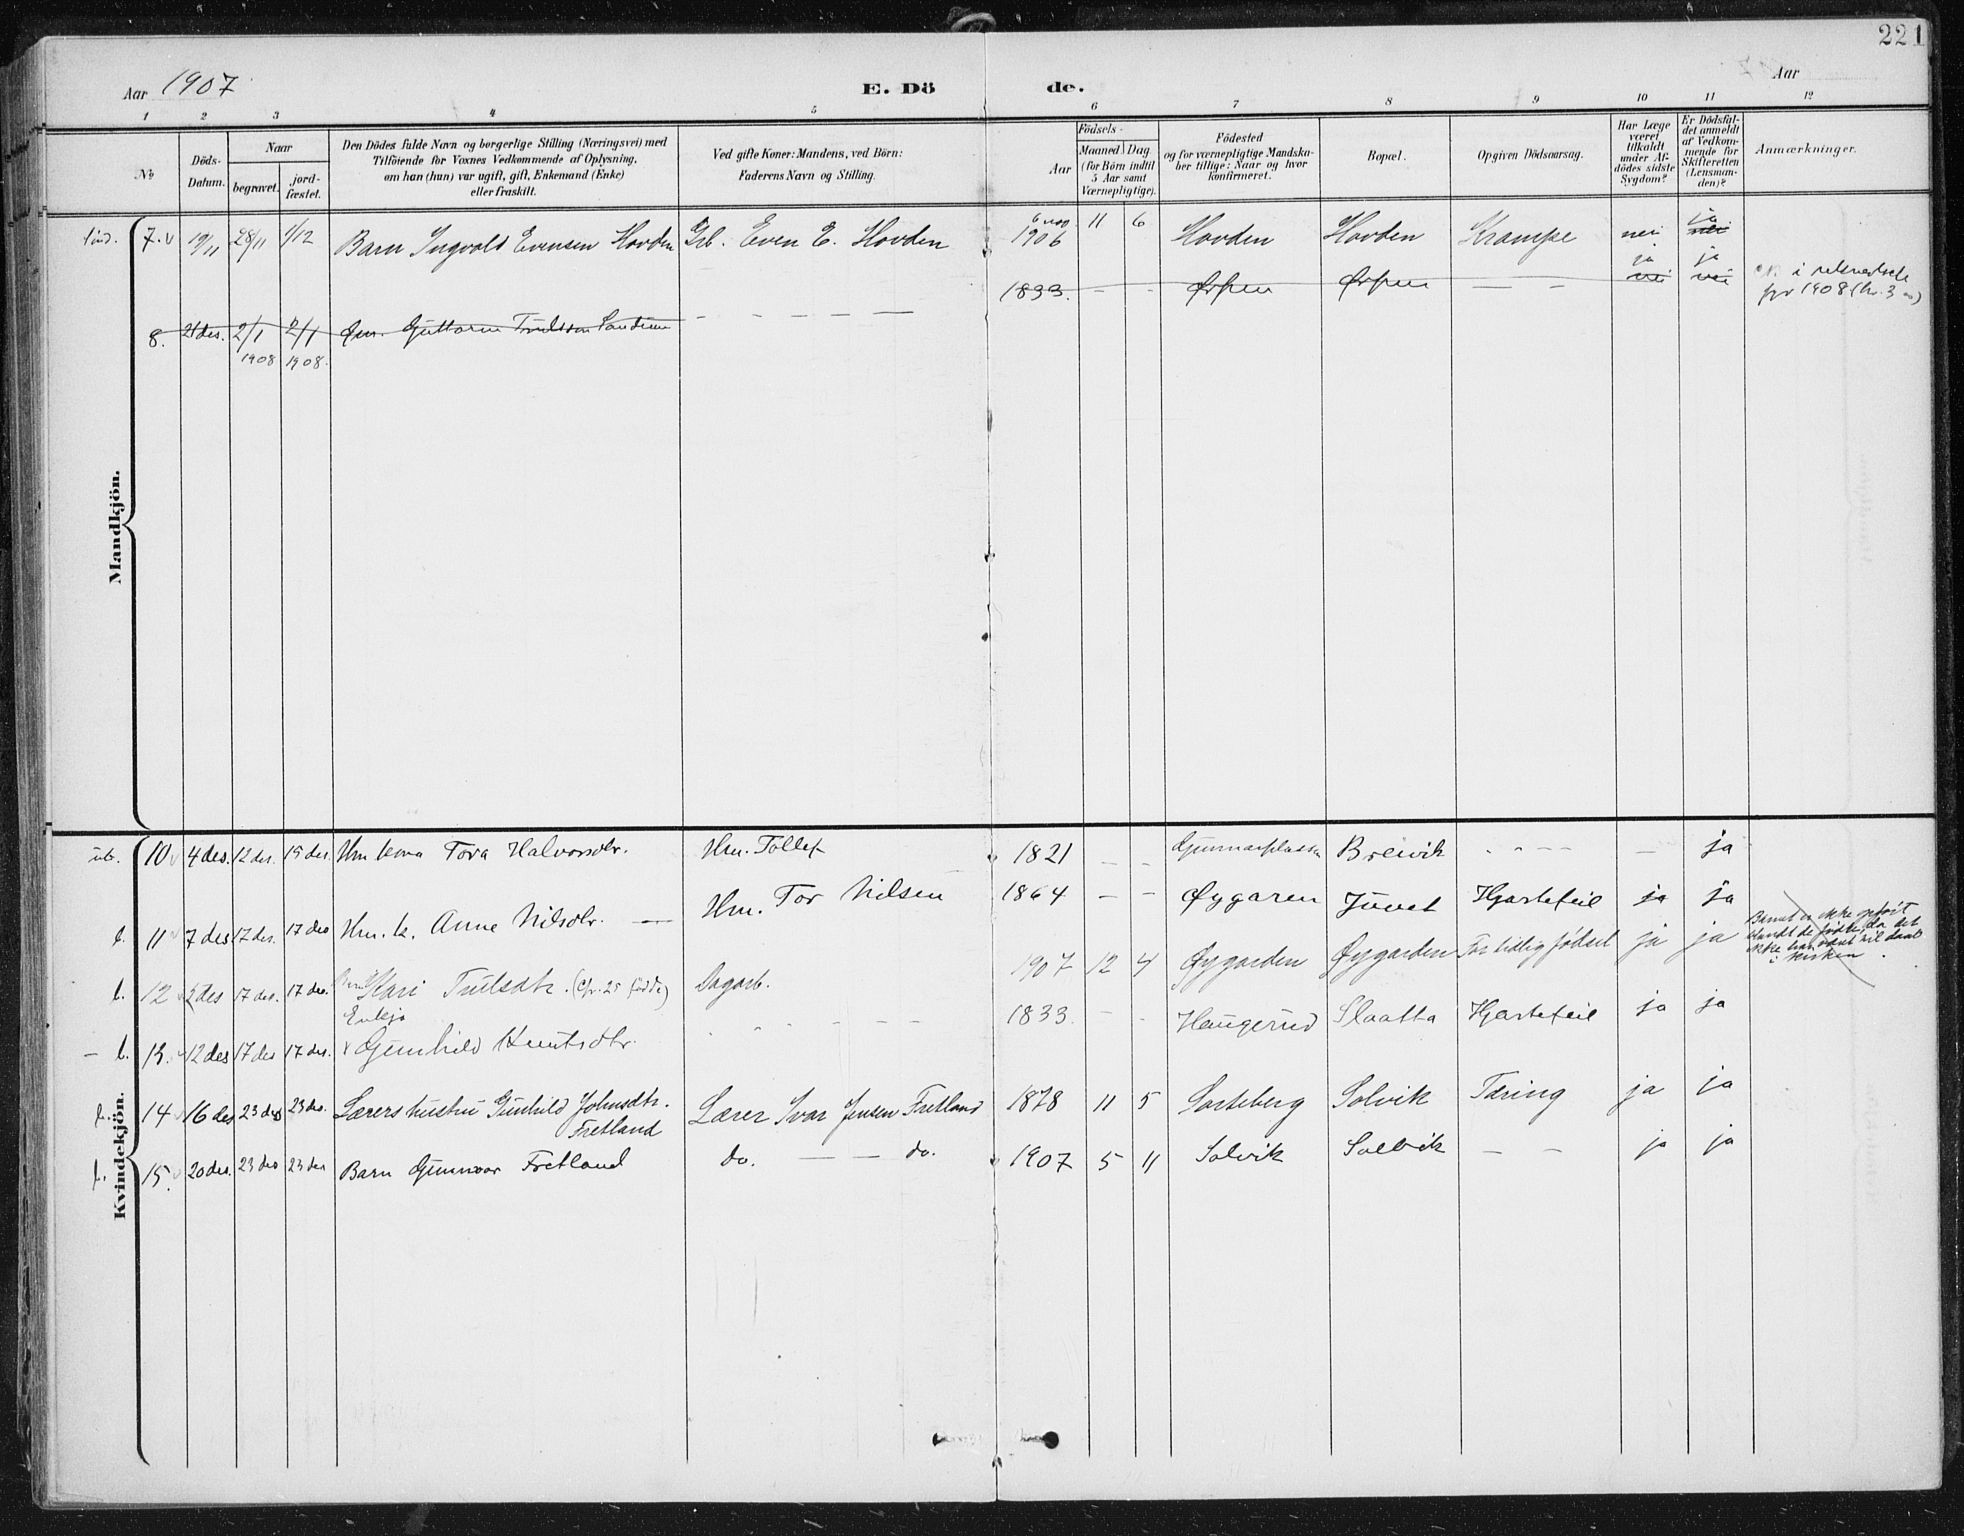 221
Aar 1907 E. Dö de. Aar
1 2 3 4 5 6 7 8 9 10 11 12
No
Döds-Datum.
Naar
begravet.
jord-fæstet.
Den Dödes fulde Navn og borgerlige Stilling (Næringsvei) med
Tilföiende for Voxnes Vedkommende af Oplysning,
om han (hun) var ugift, gift, Enkemand (Enke)
eller fraskilt.
Ved gifte Koner: Mandens, ved Börn:
Faderens Navn og Stilling.
Födsels-
Aar
Maaned Dag
(for Börn indtil
5 Aar samt
Værnepligtige).
Födested
og for værnepligtige Mandska-
ber tillige: Naar og hvor
konfirmeret.
Bopæl.
Opgiven Dödsaarsag.
Har Læge
været
tilkaldt
under Af-
dödes sidste
Sygdom?
Er Dödsfal-
det anmeldt
af Vedkom-
mende for
Skifteretten
(Lensman-
den)?
Anmærkninger.
Mandkjön.
7. 19/11 28/11 1/12 Barn Ingvald Evensen Hovden Grb. Even E. Hovden 1906 11 6 Hovden Hovden Krampe nei nei ja
8. 21 des. 2/1 1908 2/1 1908. Guttorm 1833. – – – – ja ja
i
for 1908 (nr. 3
Kvindekjön.
10 4 des. 12 des. 15 des. Hm kona Tora Halvorsdtr. Hm. Tollef 1821 – – Breivik – ja
11 7 des 17 des. 17 des Hm. k. Anne Nilsdtr. — Hm. Tor Nilsen 1864 – – Øygaren Juvet Hjartefeil ja ja
12 des 17 des. 17 des. Kari Trulsdtr. Dagarb. 1907 12 4 Øygarden Øygarden For tidlig fødsel ja ja
Barnet er ikke opført
blandt de fødte, da det
ikke har været til daab
i kirken.
Enkja
13. 12 des 17 des 17 des. Gunhild Knutsdtr. 1833 – – Haugerud Slaatta Hjartefeil ja ja
14 16 des 23 des 23 des. Lærers hustru Gunhild Johnsdtr. Lærer Ivar Jensen Fretland 1878 11 5 Sorteberg Solvik Tæring ja ja
Fretland
15. 20 des. 23 des 23 des Barn Gunnvor Fretland do. — — do. 1907 5 11 Solvik Solvik – – ja ja